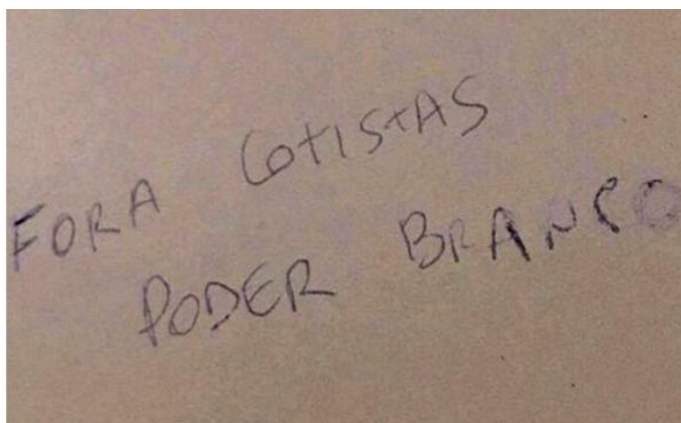 FORA COTISTAS
PODER BRANCO